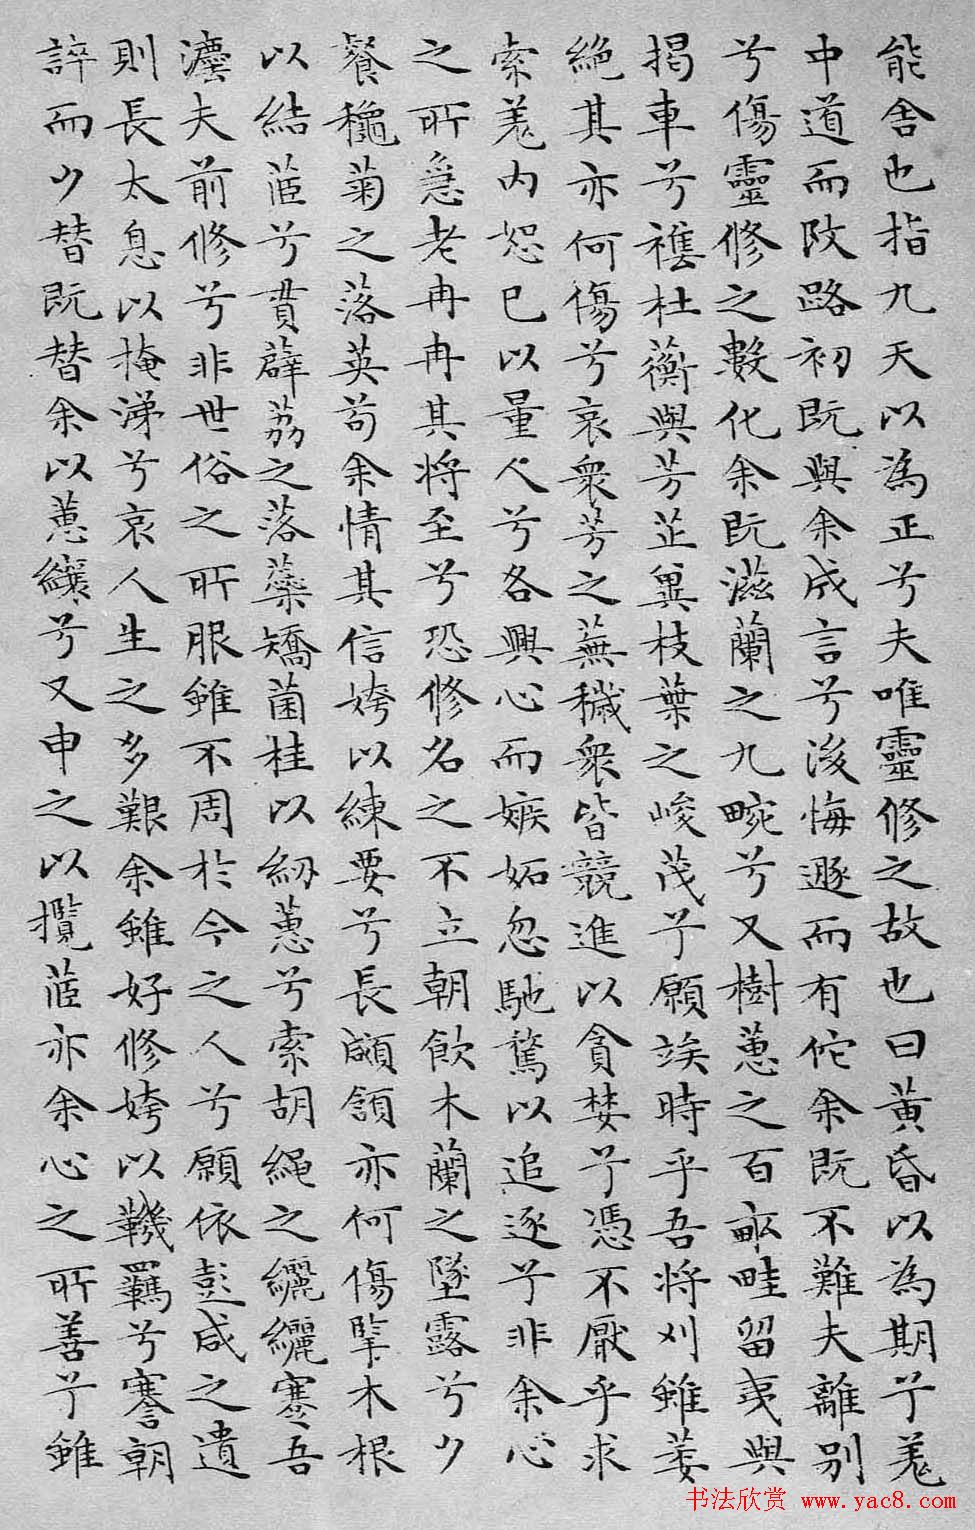 能舍也指九天以為正兮夫唯靈修之故也曰黄昏以為期兮羌
中道而改路初既與余成言兮後悔遯而有佗余既不難夫離别
兮傷靈修之數化余既滋蘭之九畹兮又樹蕙之百畝畦留夷與
揭車兮襍杜蘅與芳芷兾枝葉之峻茂兮願竢時乎吾將刈雖萎
絶其亦何傷兮哀衆芳之蕪穢衆皆競進以貪婪兮憑不厭乎求
索羌内恕己以量人兮各興心而嫉妬忽馳騖以追逐兮非余心
之所急老冉冉其将至兮恐修名之不立朝飲木蘭之墜露兮夕
餐穐菊之落英苟余情其信姱以練要兮長顑頷亦何傷擥木根
以結茝兮貫薜荔之落蘂矯菌桂以紉蕙兮索胡繩之纚纚謇吾
灋夫前修兮非世俗之所服雖不周於今之人兮願依彭咸之遺
則長太息以掩涕兮哀人生之多艱余雖好修姱以鞿羈兮謇朝
誶而夕替既替余以蕙纕兮又申之以攬茝亦余心之所善兮雖
书法欣赏 www.yac8.com